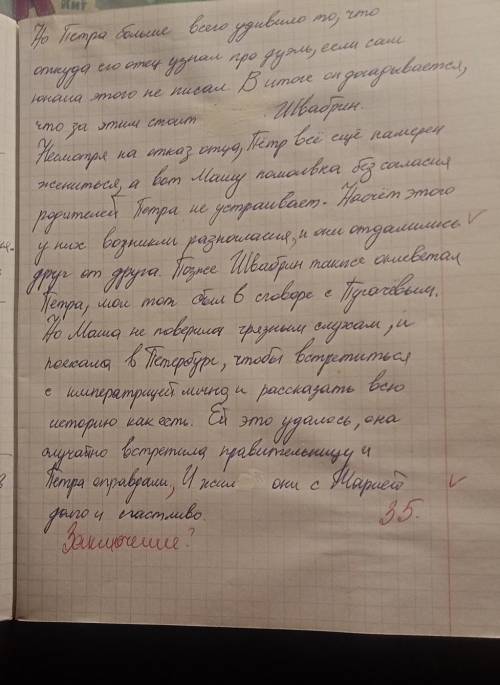 Но Петра больше всего удивило то, что
откуда его отец узнал про дуэль, если сам
юноша этого не писал. В итоге он догадывается,
что за этим стоит Швабрин.
Несмотря на отказ отца, Пётр всё ещё намерен
жениться, а вот Машу помолвка без согласия
родителей Петра не устраивает. Насчёт этого
у них возникли разногласия, и они отдалились
друг от друга. Позже Швабрин также оклеветал
Петра, мол тот был в сговоре с Пугачёвым.
Но Маша не поверила грязным слухам, и
поехала в Петербург, чтобы встретиться
с императрицей лично и рассказать всю
историю как есть. Ей это удалось, она
случайно встретила правительницу и
Петра оправдали, И жили они с Марией
долго и счастливо.
35.
Заключение?